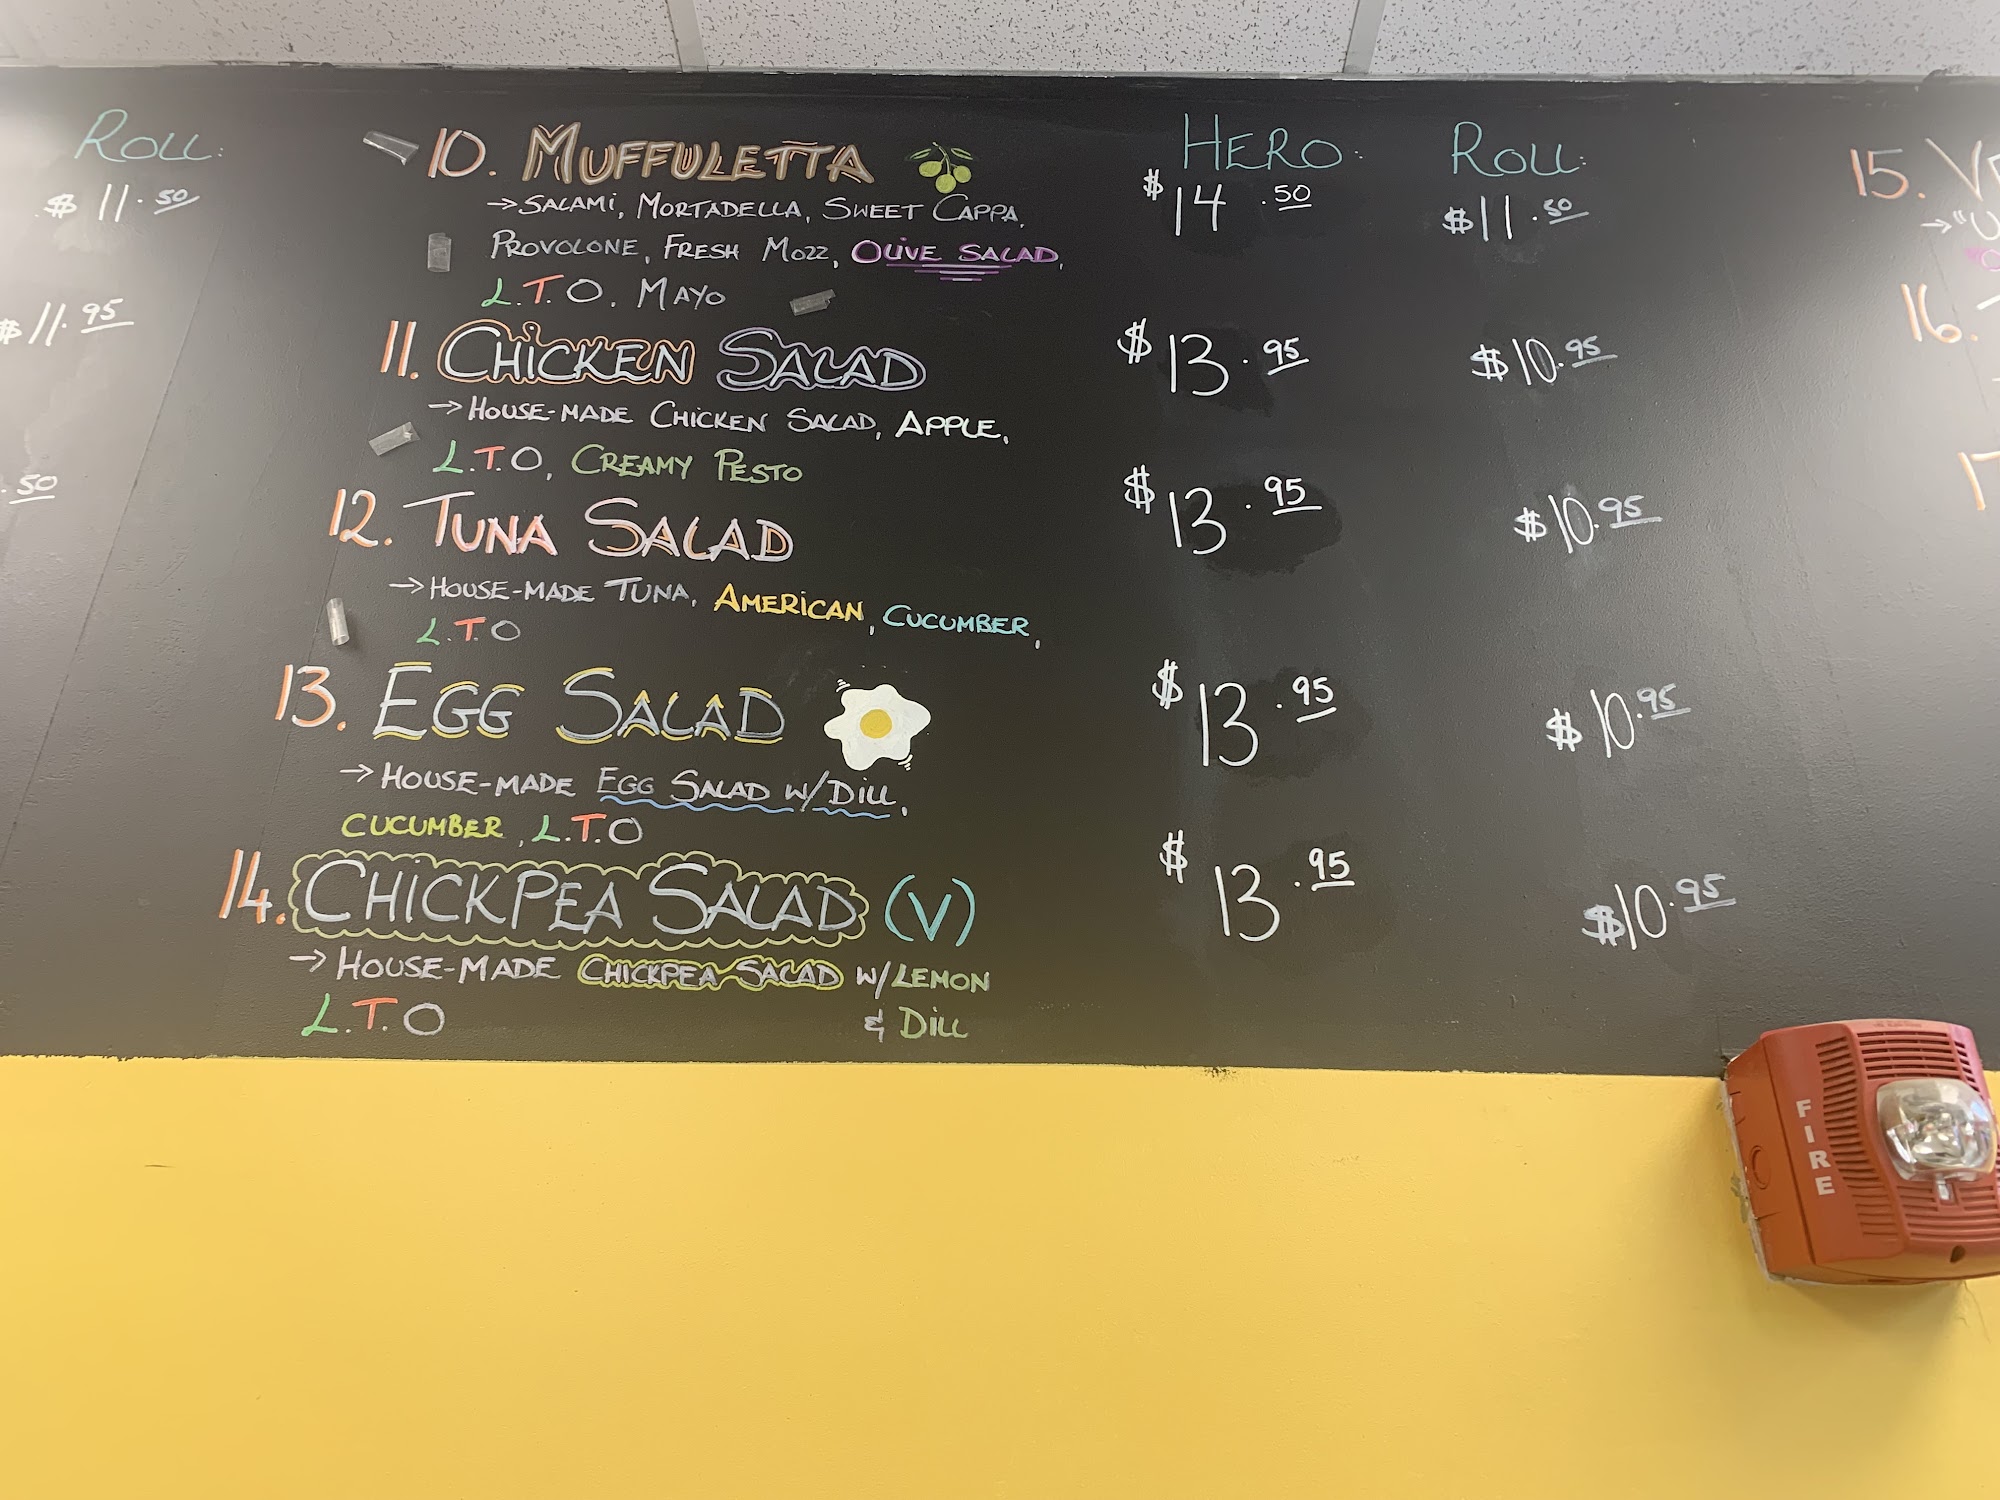 ROLL:
$11.50
$11.95
.50
10. MUFFULETTA
→ SALAMI, MORTADELLA, SWEET CAPPA,
PROVOLONE, FRESH MOZZ, OLIVE SALAD,
L.T.O. MAYO
11. CHICKEN SALAD
→ HOUSE-MADE CHICKEN SALAD, APPLE,
L.T.O, CREAMY PESTO
12. TUNA SALAD
→ HOUSE-MADE TUNA, AMERICAN, CUCUMBER,
L.T.O
13. EGG SALAD
→ HOUSE-MADE EGG SALAD W/ DILL,
CUCUMBER, L.T.O
14. CHICKPEA SALAD (V)
→ HOUSE-MADE CHICKPEA SALAD W/ LEMON
L.T.O & DILL
HERO: ROLL:
$14.50 $11.50
$13.95 $10.95
$13.95 $10.95
$13.95 $10.95
$13.95 $10.95
15.
16.
FIRE